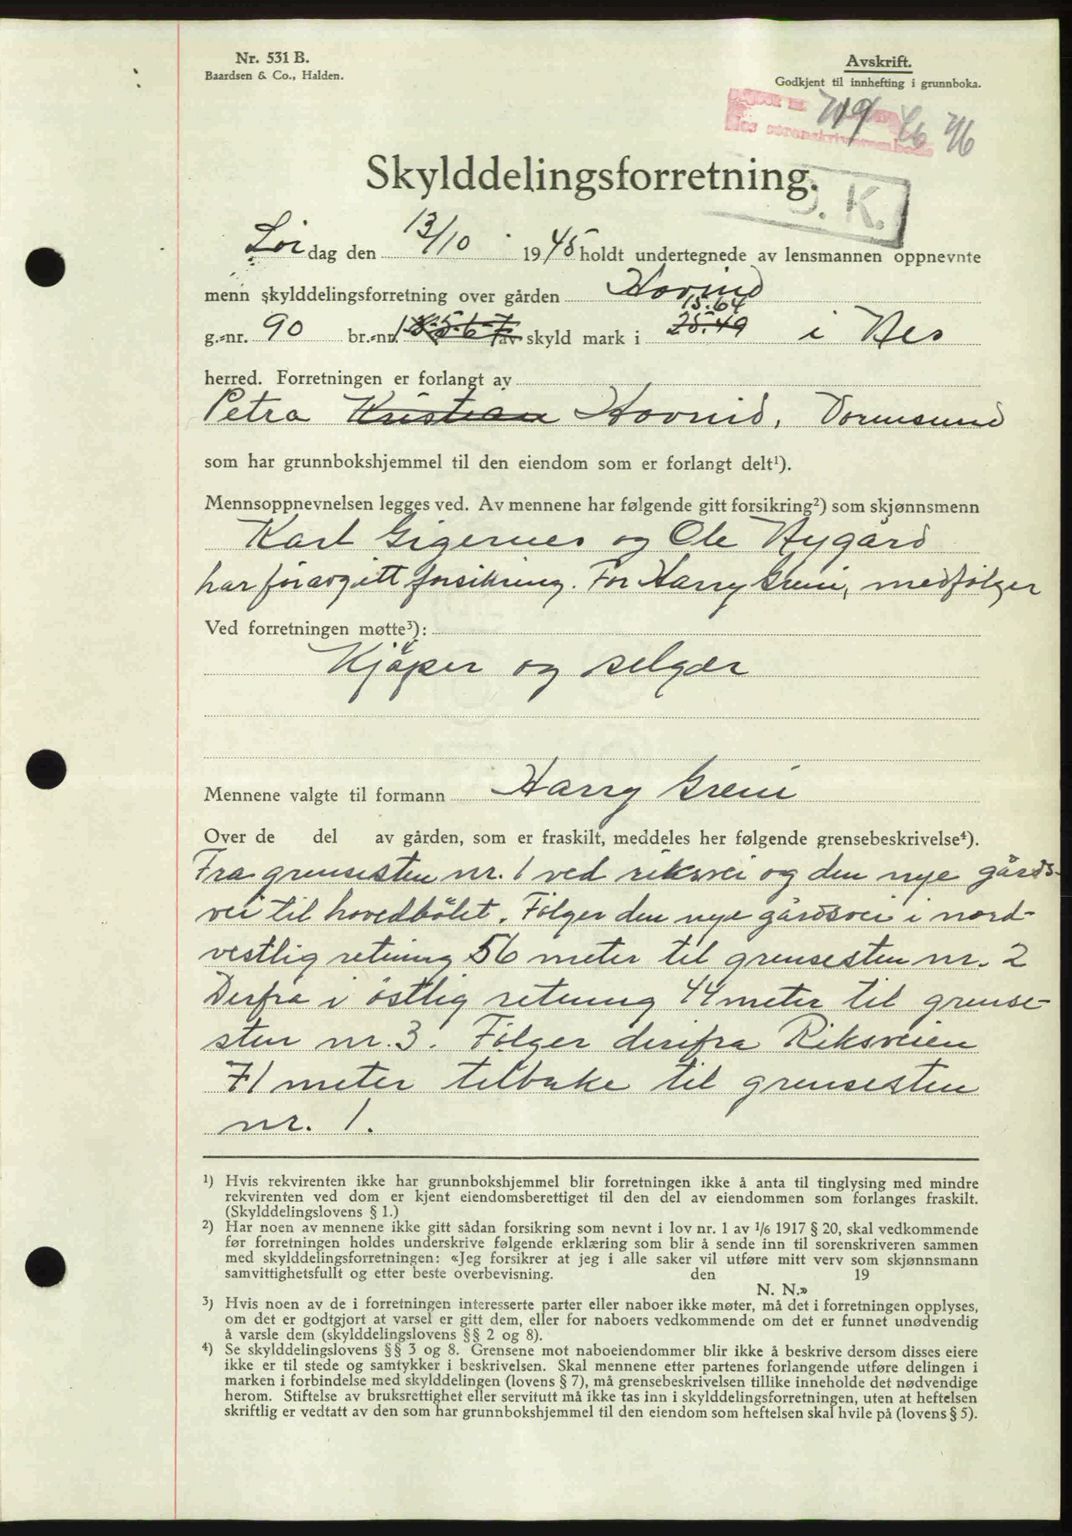 Nr. 531 B.
Baardsen & Co., Halden.
Avskrift.
Godkjent til innhefting i grunnboka.
719 46
Nes sorenskriverembede
S. K.
Skylddelingsforretning.
Lördag den 13/10 1945 holdt undertegnede av lensmannen oppnevnte
menn skylddelingsforretning over gården Hovind
15.64
g.-nr. 90 br.-nr. 1 av skyld mark i 25.49 i Nes
herred. Forretningen er forlangt av
Petra Kristian Hovind, Vormsund
som har grunnbokshjemmel til den eiendom som er forlangt delt¹).
Mennsoppnevnelsen legges ved. Av mennene har følgende gitt forsikring²) som skjønnsmenn
Karl Gigernes og Ole Nygård
har föravgitt forsikring. For Harry Greni, medfölger
Ved forretningen møtte³):
Kjöper og selger
Mennene valgte til formann Harry Greni
Over de del av gården, som er fraskilt, meddeles her følgende grensebeskrivelse⁴).
Fra grensesten nr. 1 ved riksvei og den nye gårds-
vei til hovedbölet. Fölger den nye gårdsvei i nord-
vestlig retning 56 meter til grensesten nr. 2
Derfra i östlig retning 44 meter til grense-
sten nr. 3. Fölger derifra Riksveien
71 meter tilbake til grensesten
nr. 1.
¹) Hvis rekvirenten ikke har grunnbokshjemmel blir forretningen ikke å anta til tinglysing med mindre
rekvirenten ved dom er kjent eiendomsberettiget til den del av eiendommen som forlanges fraskilt.
(Skylddelingslovens § 1.)
²) Har noen av mennene ikke gitt sådan forsikring som nevnt i lov nr. 1 av 1/6 1917 § 20, skal vedkommende
før forretningen holdes underskrive følgende erklæring som blir å sende inn til sorenskriveren sammen
med skylddelingsforretningen: «Jeg forsikrer at jeg i alle saker vil utføre mitt verv som skjønnsmann
samvittighetsfullt og etter beste overbevisning. den 19
N. N.»
³) Hvis noen av de i forretningen interesserte parter eller naboer ikke møter, må det i forretningen opplyses,
om det er godtgjort at varsel er gitt dem, eller for naboers vedkommende om det er funnet unødvendig
å varsle dem (skylddelingslovens §§ 2 og 8).
⁴) Se skylddelingslovens §§ 3 og 8. Grensene mot naboeiendommer blir ikke å beskrive dersom disses eiere
ikke er til stede og samtykker i beskrivelsen. Skal mennene etter partenes forlangende utføre delingen i
marken i forbindelse med skylddelingen (lovens § 7), må grensebeskrivelsen tillike inneholde det nødvendige
herom. Stiftelse av bruksrettighet eller servitutt må ikke tas inn i skylddelingsforretningen, uten at heftelsen
skriftlig er vedtatt av den som har grunnbokshjemmel til den eiendom som heftelsen skal hvile på (lovens § 5).